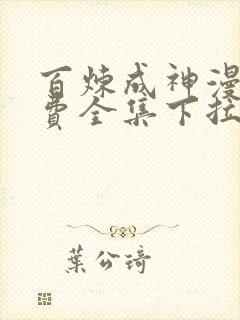 百炼成神漫
费全集下拉
葉公琦